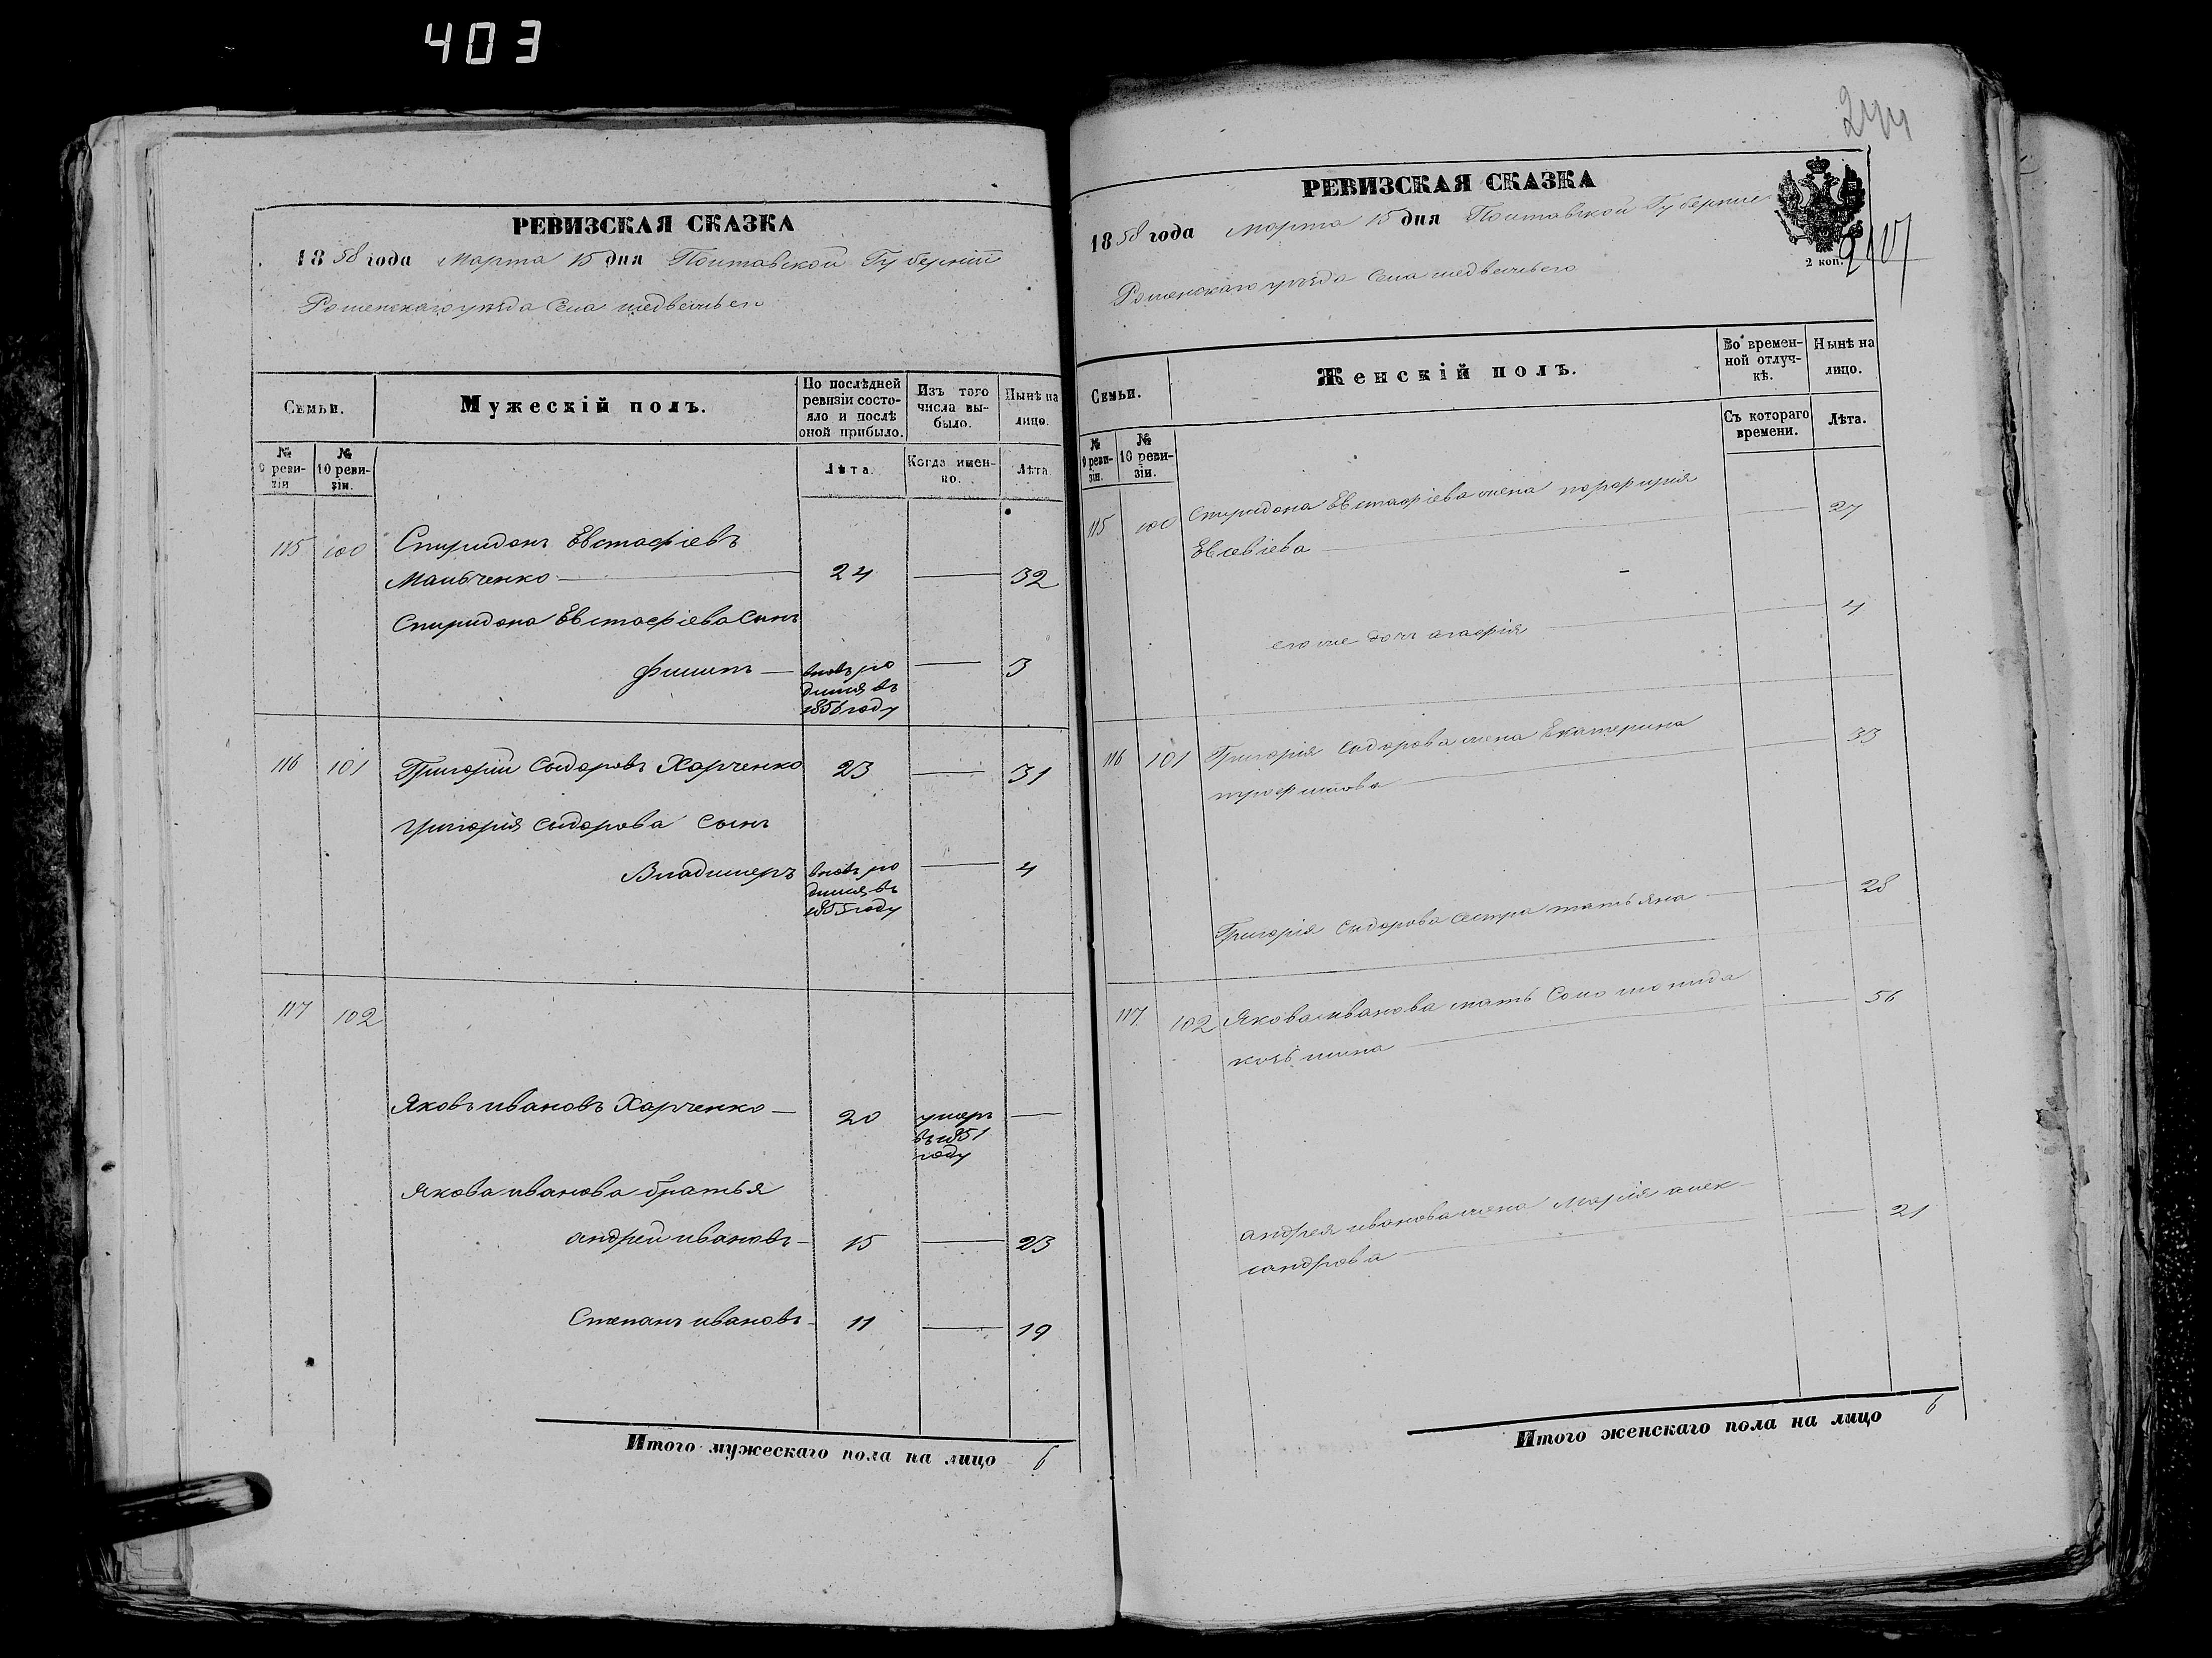 403
РЕВИЗСКАЯ СКАЗКА
1858 года Марта 15 дня Полтавской Губерніи
Роменскаго уѣзда Села медвежьего
Семьи.
Мужескій полъ.
По послѣдней ревизіи состояло и послѣ оной прибыло.
Изъ того числа выбыло.
Нынѣ на лицо.
№ 9 ревизіи
№ 10 ревизіи.
Лѣта.
Когда именно.
Лѣта
115 100 Спиридонъ Евстафіевъ
Мальченко 24 32
Спиридона Евстафіева Сынъ
филипъ вновь ро 3
дился въ
1856 году
116 101 Григорій Сыдоровъ Харченко 23 31
григорія Сыдорова Сынъ
Владимеръ вновь ро 4
дился въ
1855 году
117 102
Яковъ ивановъ Харченко 20 умеръ
въ 1851
году
Якова иванова братья
андрей ивановъ 15 23
Степанъ ивановъ 11 19
Итого мужескаго пола на лицо 6
244
РЕВИЗСКАЯ СКАЗКА
1858 года Марта 15 дня Полтавской Губерніи
2 коп.
Роменскаго уѣзда Села медвежьего
Семьи.
Женскій полъ.
Во временной отлучкѣ.
Нынѣ на лицо.
№ 9 ревизіи.
№ 10 ревизіи.
Съ котораго времени.
Лѣта.
115 100 Спиридона Евстафіева жена порфирія 27
Евсевіева
его же дочь агафія 4
116 101 Григорія Сыдорова жена Екатерина 33
трофимова
Григорія Сыдорова сестра татьяна 28
117 102 Якова иванова мать Соломонида 56
козьмина
андрея иванова жена Марія алек
сандрова 21
Итого женскаго пола на лицо 6